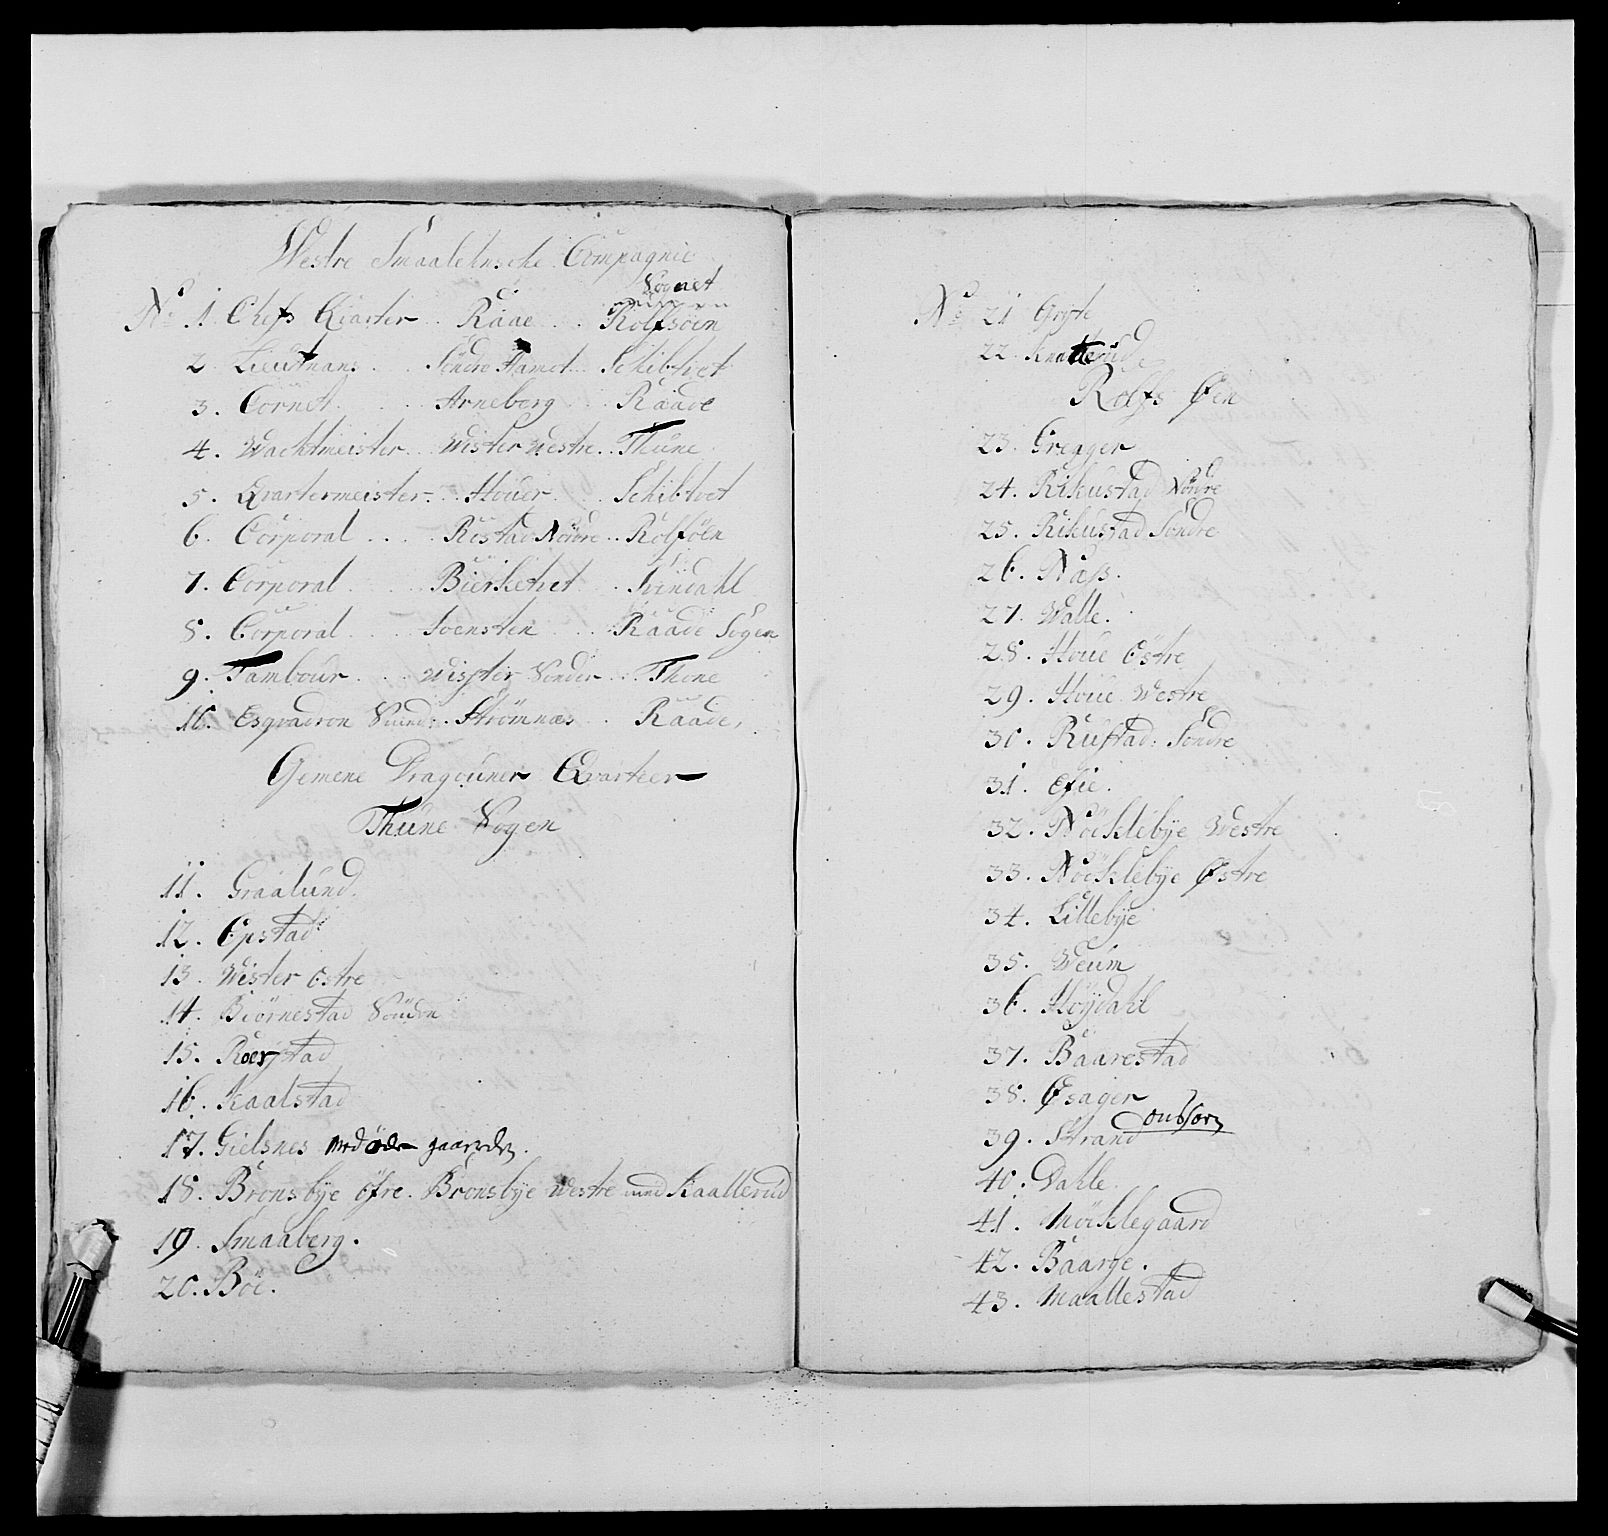 Westre Smaalehnsche Compagnie
Sognet
No. 1. Chefs Qvarter .. Raae .. Rolfsöen
2. Lieutnans .. Söndre Hamot .. Schibtvet
3. Cornet .. Arneberg .. Raade
4. Wachtmeister .. Wister Westre .. Thune
5. Qvartermeister .. Houer .. Schibtvet
6. Corporal .... Rostad Nordre .. Rolföen
7. Corporal .... Bierketvet .. Svindahl
8. Corporal .... Soensten .. Raade Sogen
9. Tambour .... Wister Sönder .. Thune
10. Esqvadron Smed .. Strömnæs .. Raade
Gemene Dragouner Qvarteer
Thune Sogen
11. Graalund.
12. Opstad
13. Wister Ostre
14. Biörnestad Söndre
15. Roerstad
16. Kaalstad
17. Gielsnes med öde gaarden.
18. Bronsbye öfre. Bronsbye Westre med Kaallerud
19. Smaaberg.
20. Böe.
No. 21 Gryte
22. Knatterud
Rolfs Øen
23. Gregger
24. Rikustad Nordre
25. Rikustad Söndre
26. Næss.
27. Walle.
28. Houe Östre
29. Houe Westre
30. Rustad: Söndre
31. Efie.
32. Nöcklebye Westre
33. Nöcklebye Østre
34. Lillebye
35. Weum
36. Höydahl
37. Baarestad
38. Øsager
39. Strand Ousson
40. Dahle.
41. Möcklegaard
42. Baarge.
43. Maallestad